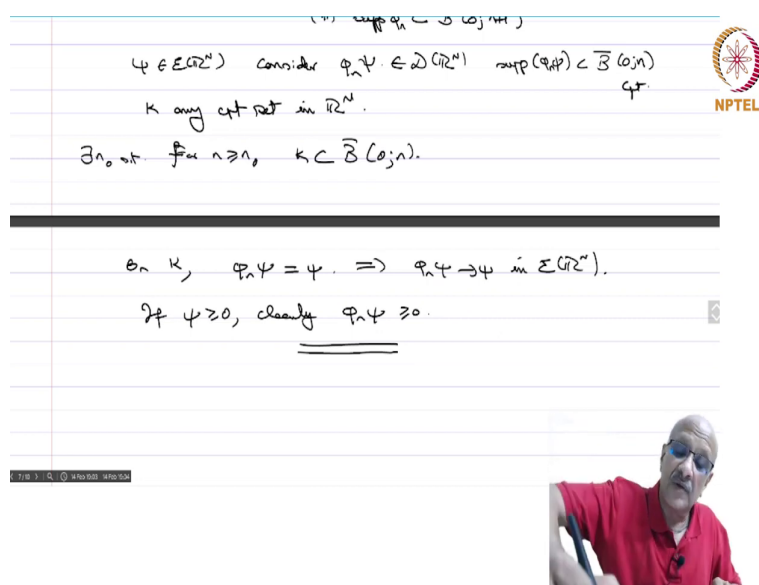 ψ ∈ ℰ(ℝᴺ) consider φₙψ ∈ 𝒟(ℝᴺ) supp(φₙψ) ⊂ B̄(0;n)
cpt.
K any cpt set in ℝᴺ.
∃n₀ st. for n≥n₀ K ⊂ B̄(0;n).
On K, φₙψ = ψ. ⟹ φₙψ → ψ in ℰ(ℝᴺ).
If ψ ≥ 0, clearly φₙψ ≥ 0.
NPTEL
14 Feb 15:03 14 Feb 15:04